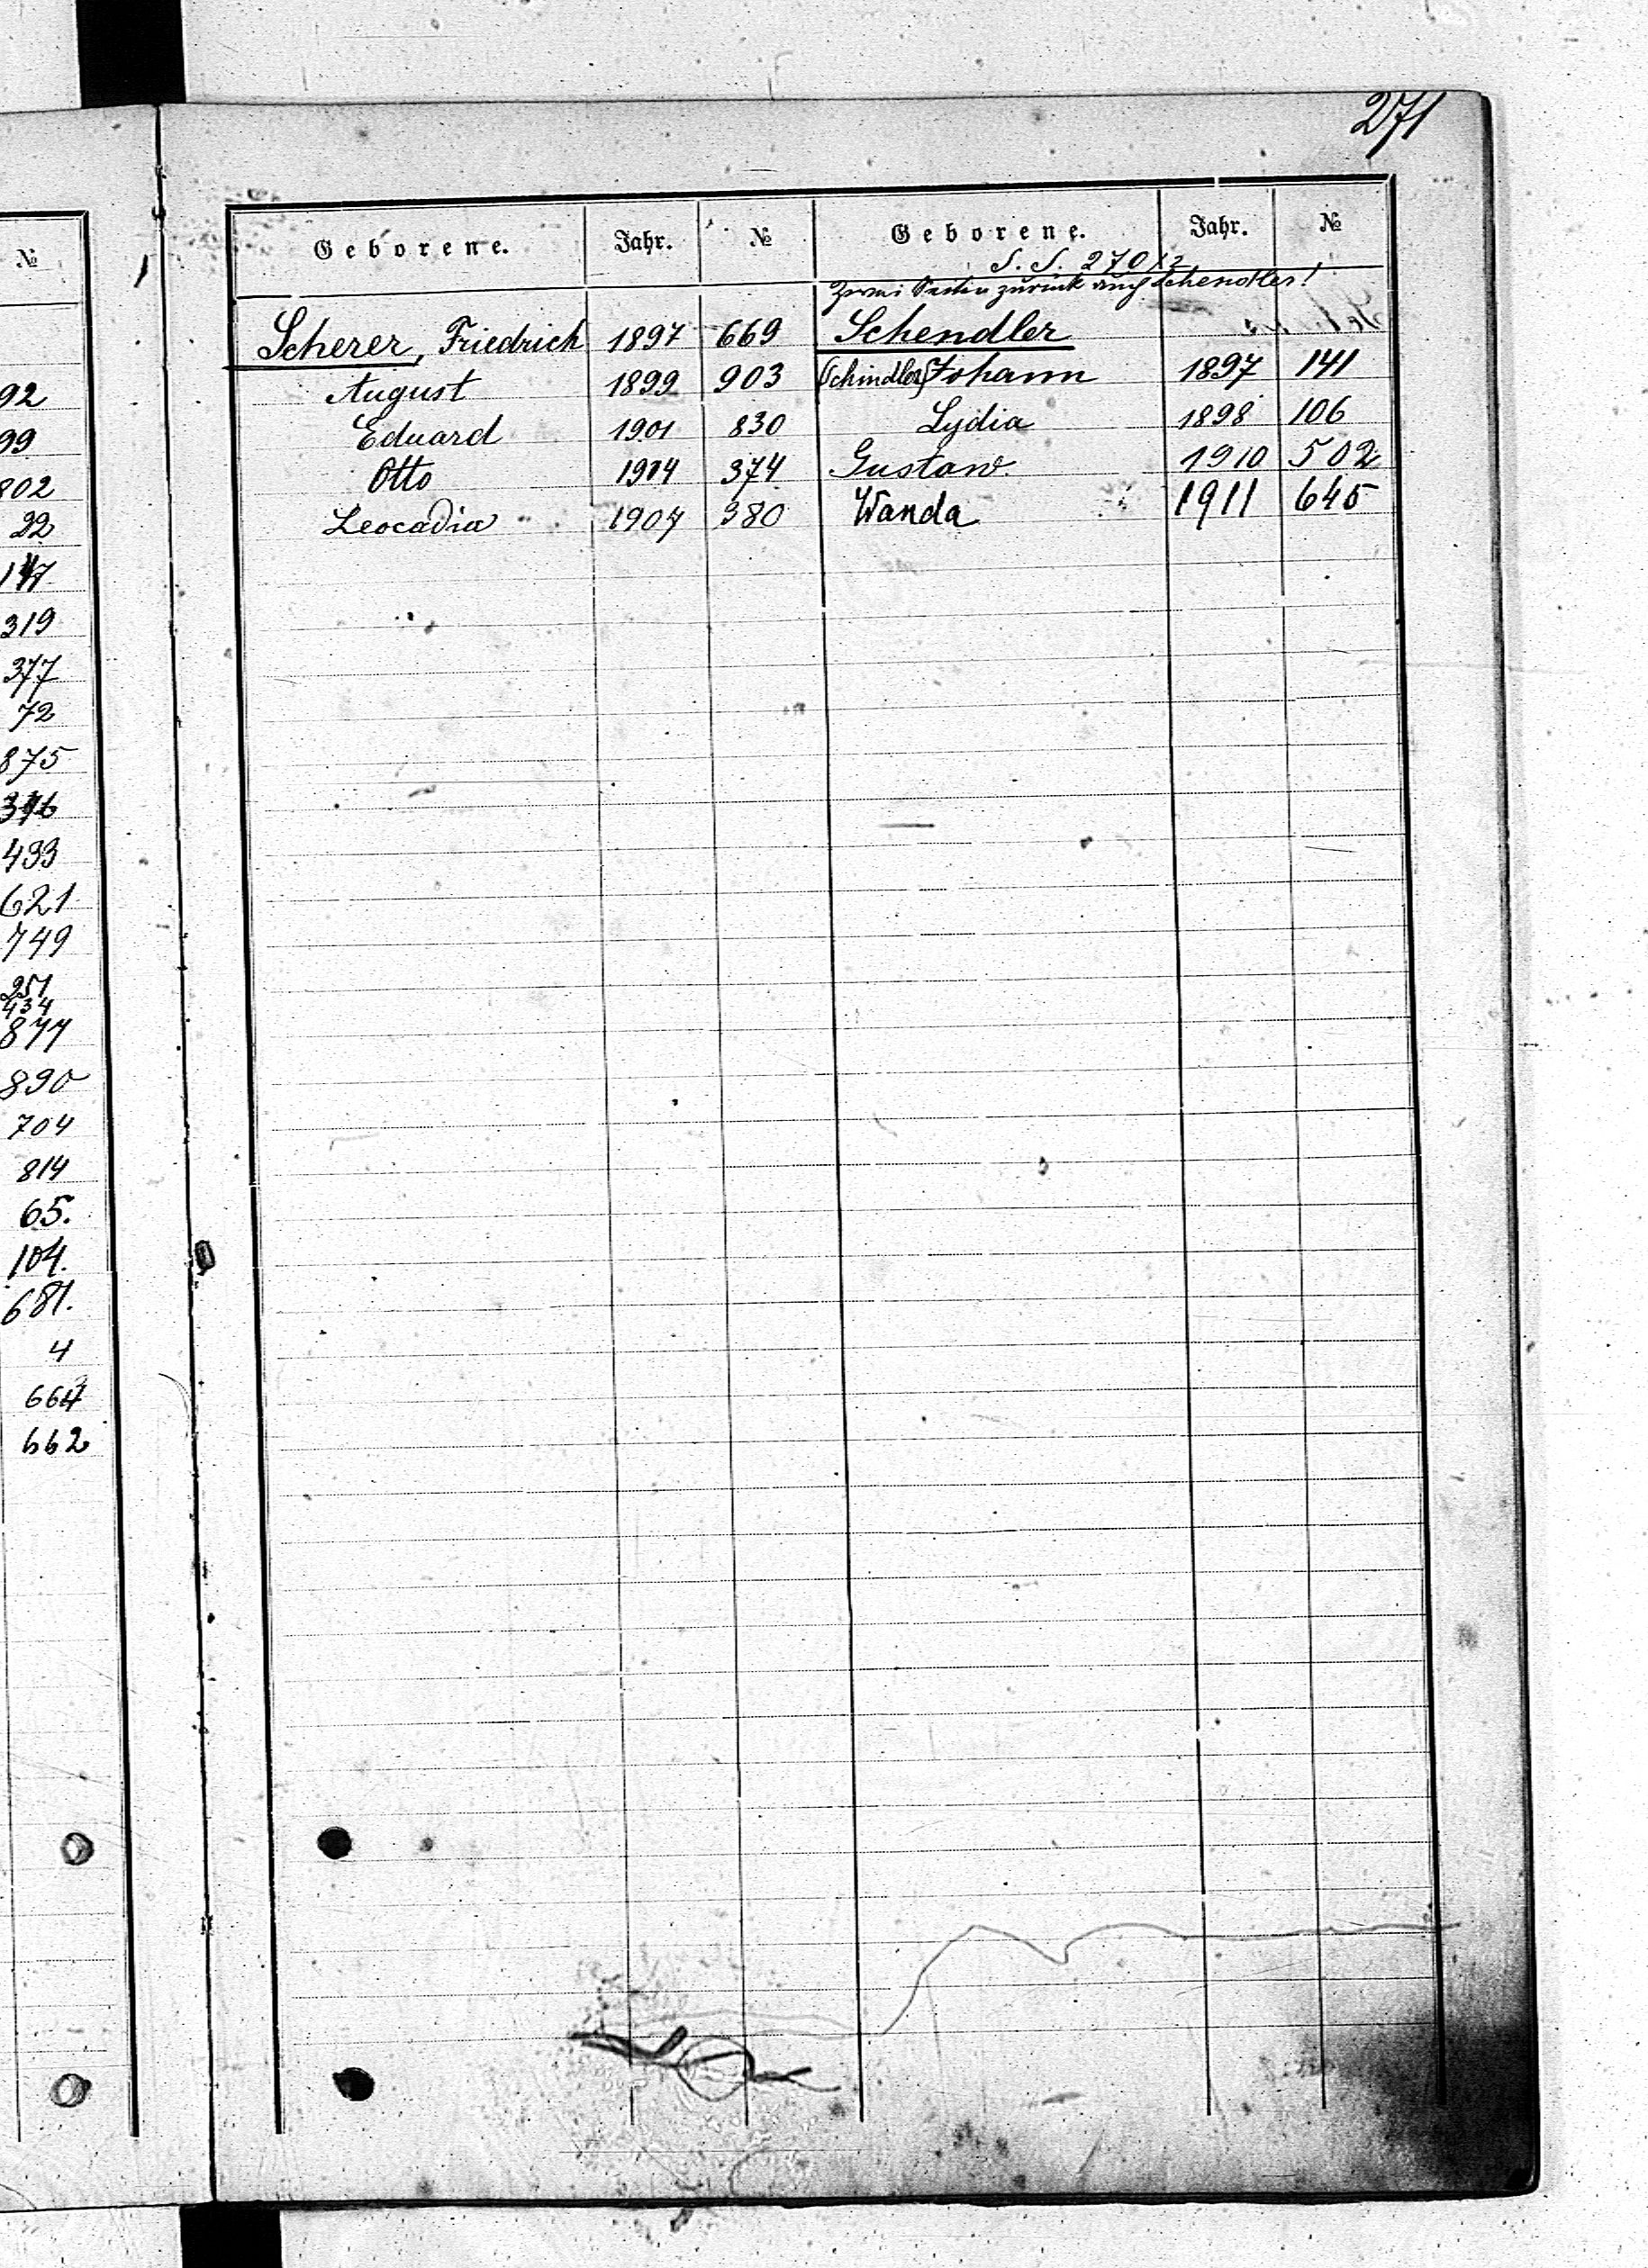 271
№
92
99
802
22
117
319
377
72
875
376
493
621
749
251
434
877
890
704
814
65.
104.
681.
4
664
662
Geborene. Jahr. №
Scherer, Friedrich 1897 669
August 1899 903
Eduard 1901 830
Otto 1904 374
Leocadia 1907 380
Geborene. Jahr. №
S. S. 270/2
Zwei Seiten zurück auch Schendler!
Schendler
(Schindler) Johann 1897 141
Lydia 1898 106
Gustaw 1910 502
Wanda 1911 645